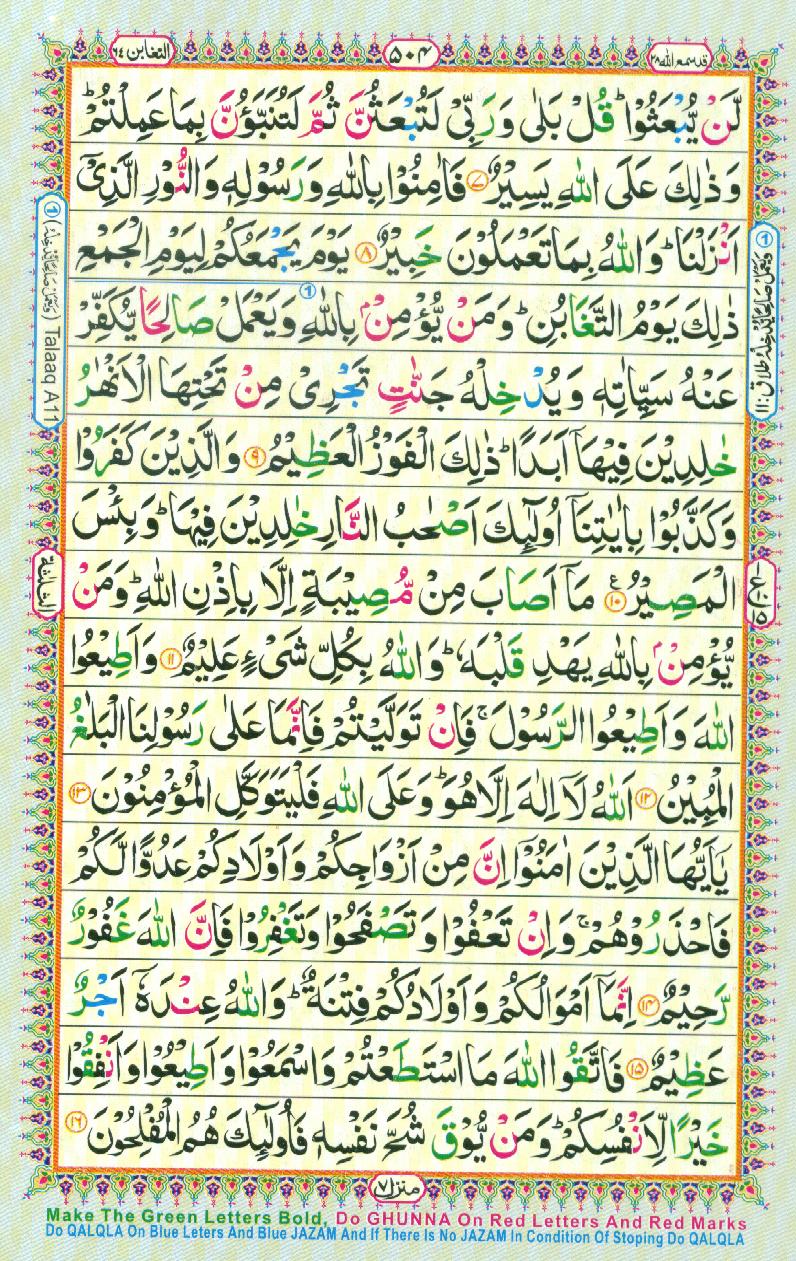 التغابن ٦٤
٥٠٤
قد سمع الله ٢٨
لَّنْ يُّبْعَثُوْا ؕ قُلْ بَلٰى وَرَبِّىْ لَتُبْعَثُنَّ ثُمَّ لَتُنَبَّؤُنَّ بِمَا عَمِلْتُمْ ؕ
وَذٰلِكَ عَلَى اللّٰهِ يَسِيْرٌ ۟۷ فَاٰمِنُوْا بِاللّٰهِ وَرَسُوْلِهٖ وَالنُّوْرِ الَّذِىْۤ
اَنْزَلْنَا ؕ وَاللّٰهُ بِمَا تَعْمَلُوْنَ خَبِيْرٌ ۟۸ يَوْمَ يَجْمَعُكُمْ لِيَوْمِ الْجَمْعِ
ذٰلِكَ يَوْمُ التَّغَابُنِ ؕ وَمَنْ يُّؤْمِنْۢ بِاللّٰهِ وَيَعْمَلْ صَالِحًا يُّكَفِّرْ
عَنْهُ سَيِّاٰتِهٖ وَيُدْخِلْهُ جَنّٰتٍ تَجْرِىْ مِنْ تَحْتِهَا الْاَنْهٰرُ
خٰلِدِيْنَ فِيْهَاۤ اَبَدًا ؕ ذٰلِكَ الْفَوْزُ الْعَظِيْمُ ۟۹ وَالَّذِيْنَ كَفَرُوْا
وَكَذَّبُوْا بِاٰيٰتِنَاۤ اُولٰٓئِكَ اَصْحٰبُ النَّارِ خٰلِدِيْنَ فِيْهَا ؕ وَبِئْسَ
الْمَصِيْرُ ۟۱۰ مَاۤ اَصَابَ مِنْ مُّصِيْبَةٍ اِلَّا بِاِذْنِ اللّٰهِ ؕ وَمَنْ
يُّؤْمِنْۢ بِاللّٰهِ يَهْدِ قَلْبَهٗ ؕ وَاللّٰهُ بِكُلِّ شَىْءٍ عَلِيْمٌ ۟۱۱ وَاَطِيْعُوا
اللّٰهَ وَاَطِيْعُوا الرَّسُوْلَ ۚ فَاِنْ تَوَلَّيْتُمْ فَاِنَّمَا عَلٰى رَسُوْلِنَا الْبَلٰغُ
الْمُبِيْنُ ۟۱۲ اَللّٰهُ لَاۤ اِلٰهَ اِلَّا هُوَ ؕ وَعَلَى اللّٰهِ فَلْيَتَوَكَّلِ الْمُؤْمِنُوْنَ ۟۱۳
يٰۤاَيُّهَا الَّذِيْنَ اٰمَنُوْۤا اِنَّ مِنْ اَزْوَاجِكُمْ وَاَوْلَادِكُمْ عَدُوًّا لَّكُمْ
فَاحْذَرُوْهُمْ ۚ وَاِنْ تَعْفُوْا وَتَصْفَحُوْا وَتَغْفِرُوْا فَاِنَّ اللّٰهَ غَفُوْرٌ
رَّحِيْمٌ ۟۱۴ اِنَّمَاۤ اَمْوَالُكُمْ وَاَوْلَادُكُمْ فِتْنَةٌ ؕ وَاللّٰهُ عِنْدَهٗۤ اَجْرٌ
عَظِيْمٌ ۟۱۵ فَاتَّقُوا اللّٰهَ مَا اسْتَطَعْتُمْ وَاسْمَعُوْا وَاَطِيْعُوْا وَاَنْفِقُوْا
خَيْرًا لِّاَنْفُسِكُمْ ؕ وَمَنْ يُّوْقَ شُحَّ نَفْسِهٖ فَاُولٰٓئِكَ هُمُ الْمُفْلِحُوْنَ ۟۱۶
Talaaq A11
منزل ۷
Make The Green Letters Bold, Do GHUNNA On Red Letters And Red Marks
Do QALQLA On Blue Leters And Blue JAZAM And If There Is No JAZAM In Condition Of Stoping Do QALQLA